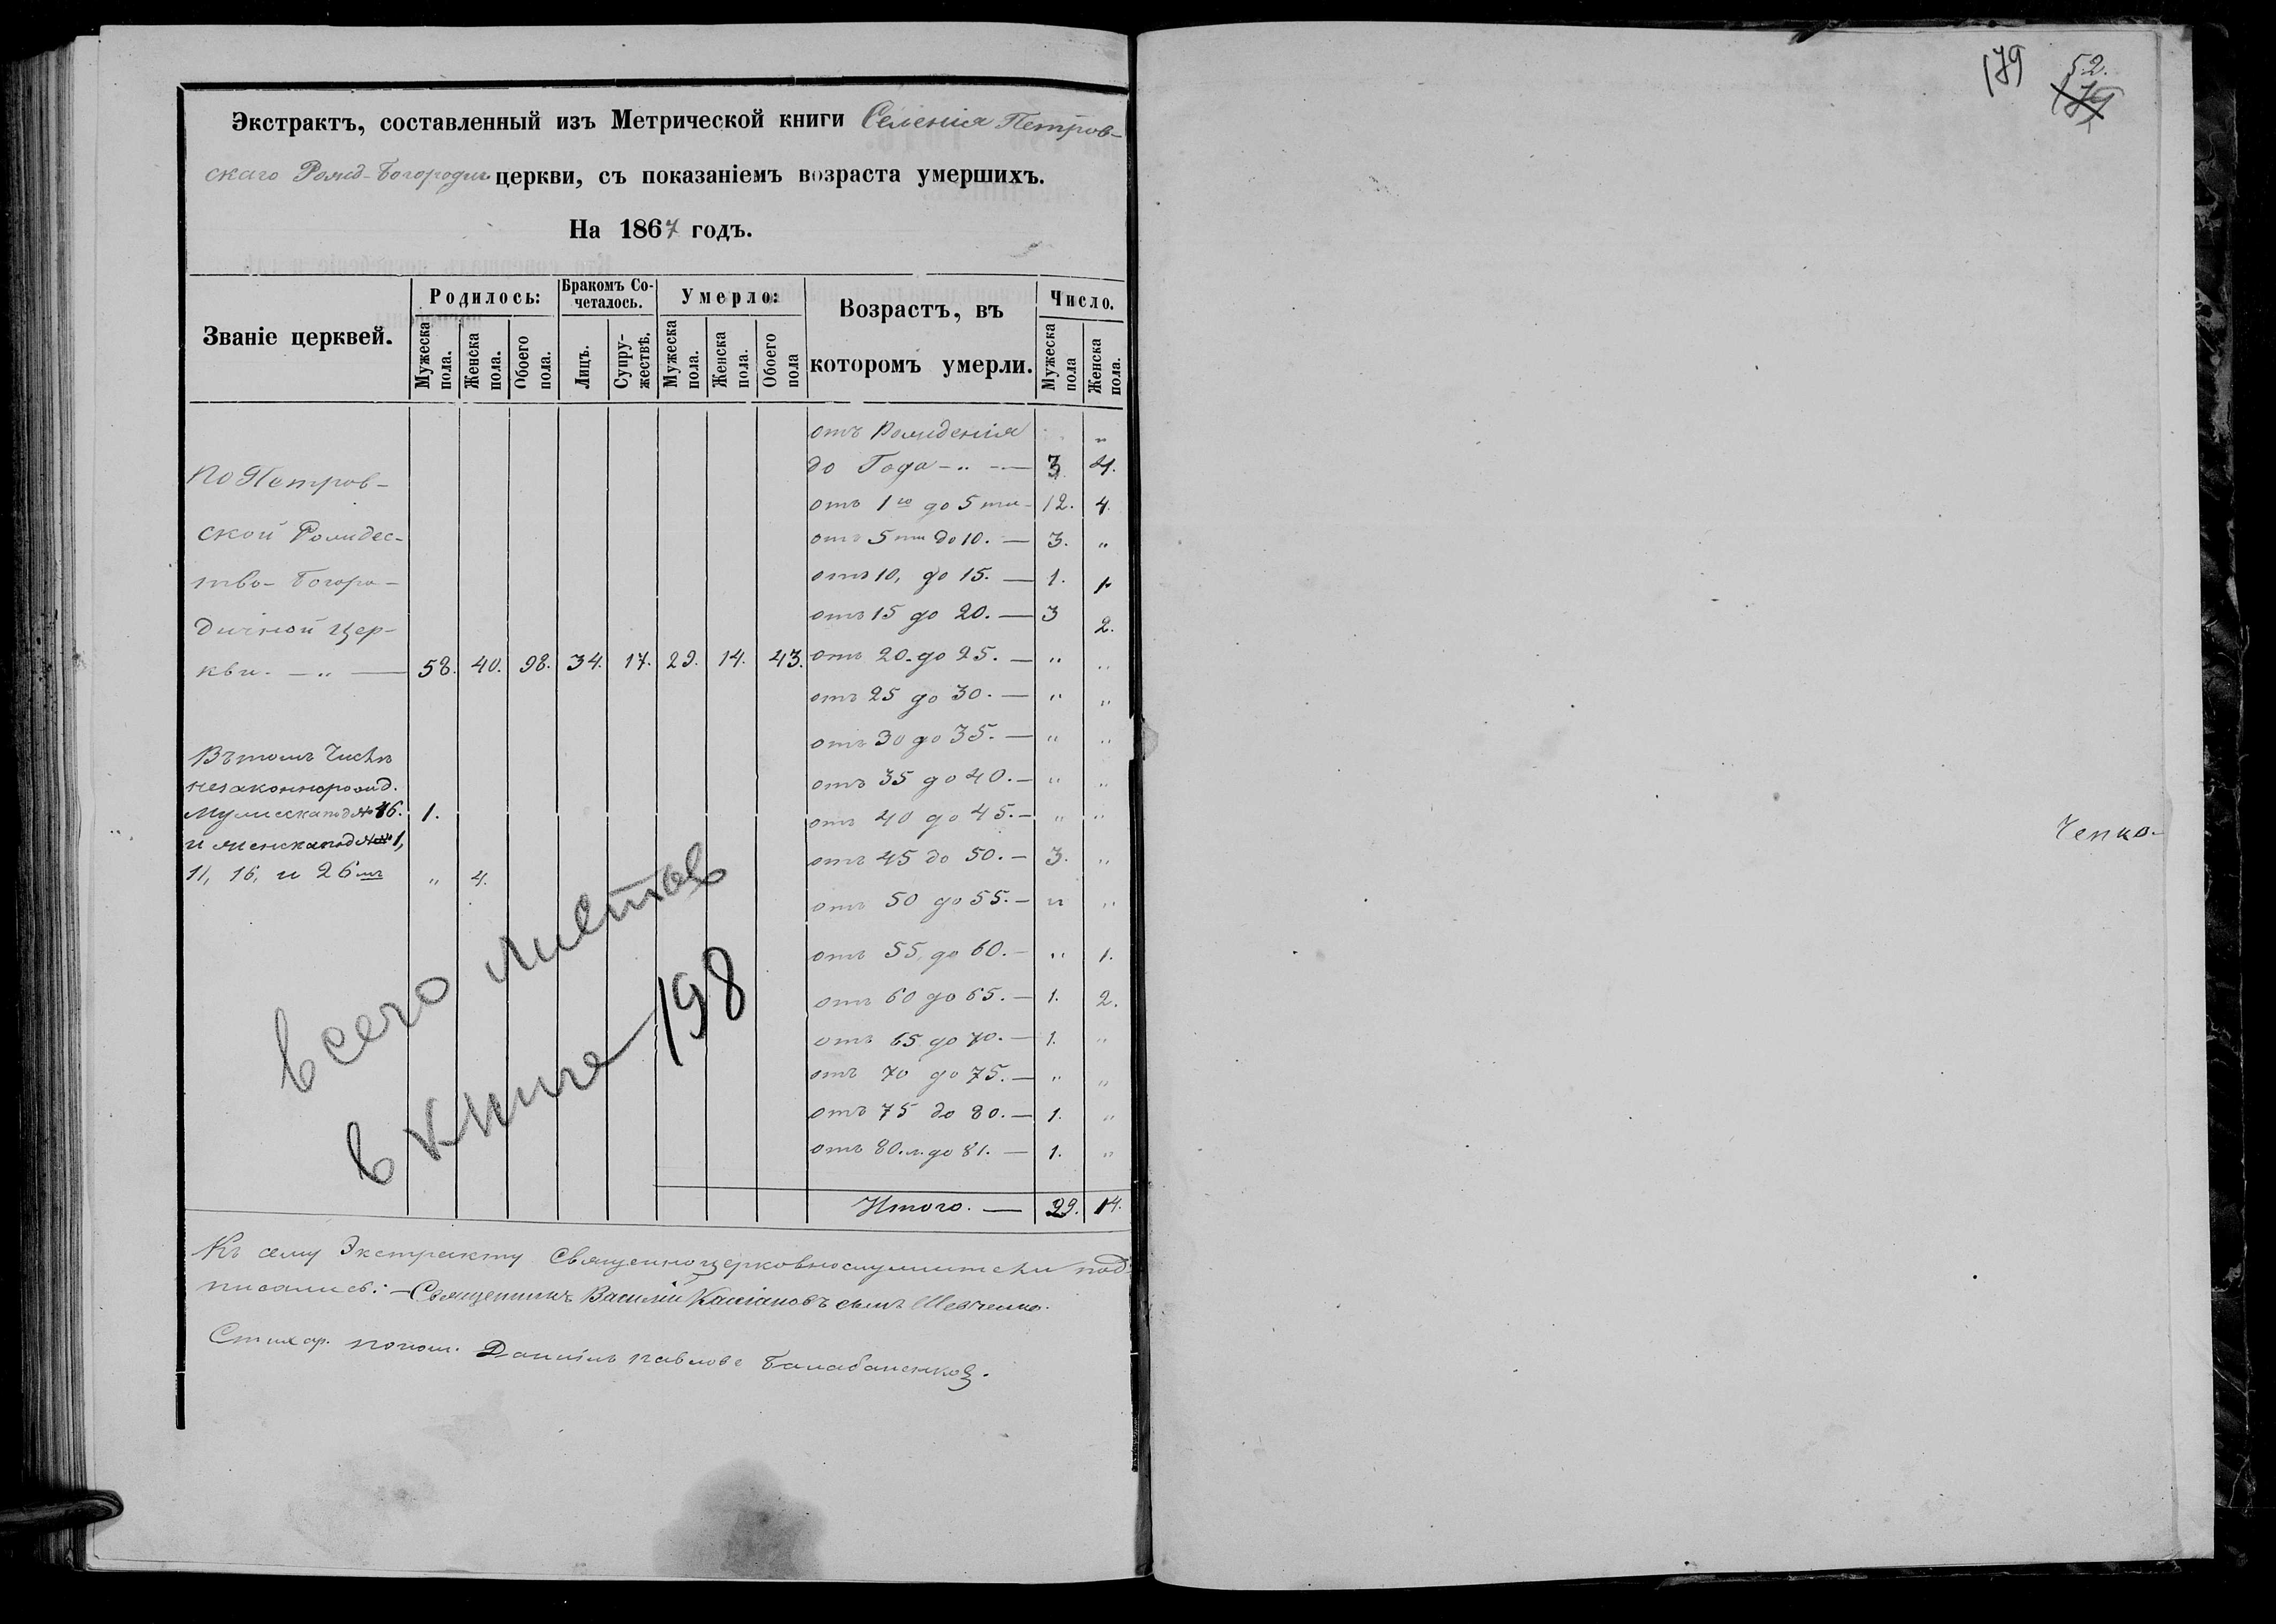 Экстрактъ, составленный изъ Метрической книги Селенія Петров-
скаго Рожд-Богородич церкви, съ показаніемъ возраста умершихъ.
На 1867 годъ.
Званіе церквей.
Родилось:
Бракомъ Со-
четалось.
Умерло:
Возрастъ, въ
которомъ умерли.
Число.
Мужеска пола.
Женска пола.
Обоего пола.
Лицъ.
Супру-
жествъ.
Мужеска пола.
Женска пола.
Обоего пола
Мужеска пола
Женска пола.
отъ Рожденія „
до Года - „ - 3 4.
отъ 1го до 5ти - 12. 4.
отъ 5ти до 10. — 3. „
отъ 10, до 15. — 1. 1.
отъ 15 до 20. — 3 2.
По Петров-
ской Рождес-
тво-Богоро-
дичной Цер-
кви. — „ — 58. 40. 98. 34. 17. 29. 14. 43. отъ 20. до 25. — „ „
отъ 25 до 30. — „ „
отъ 30 до 35. — „ „
отъ 35 до 40. — „ „
отъ 40 до 45. — „ „
отъ 45 до 50. — 3. „
отъ 50 до 55. — „ „
отъ 55, до 60. — „ 1.
отъ 60 до 65. — 1. 2.
отъ 65 до 70. — 1. „
отъ 70 до 75. — „ „
отъ 75 до 80. — 1. „
отъ 80. л. до 81. — 1. „
Итого. — 29. 14.
Въ томъ Числѣ
незаконнорожд.
Мужеска под № 16. 1.
и женска под №№ 1,
11, 16, и 26мъ „ 4.
всего листов
в книге — 198
Къ сему Экстракту Священноцерковнослужители под-
писались: — Священникъ Василій Кассіановъ сынъ Шевченко.
Стихар. поном. Даніилъ Павловъ Балабаненковъ.
179
52.
179
Ченко-